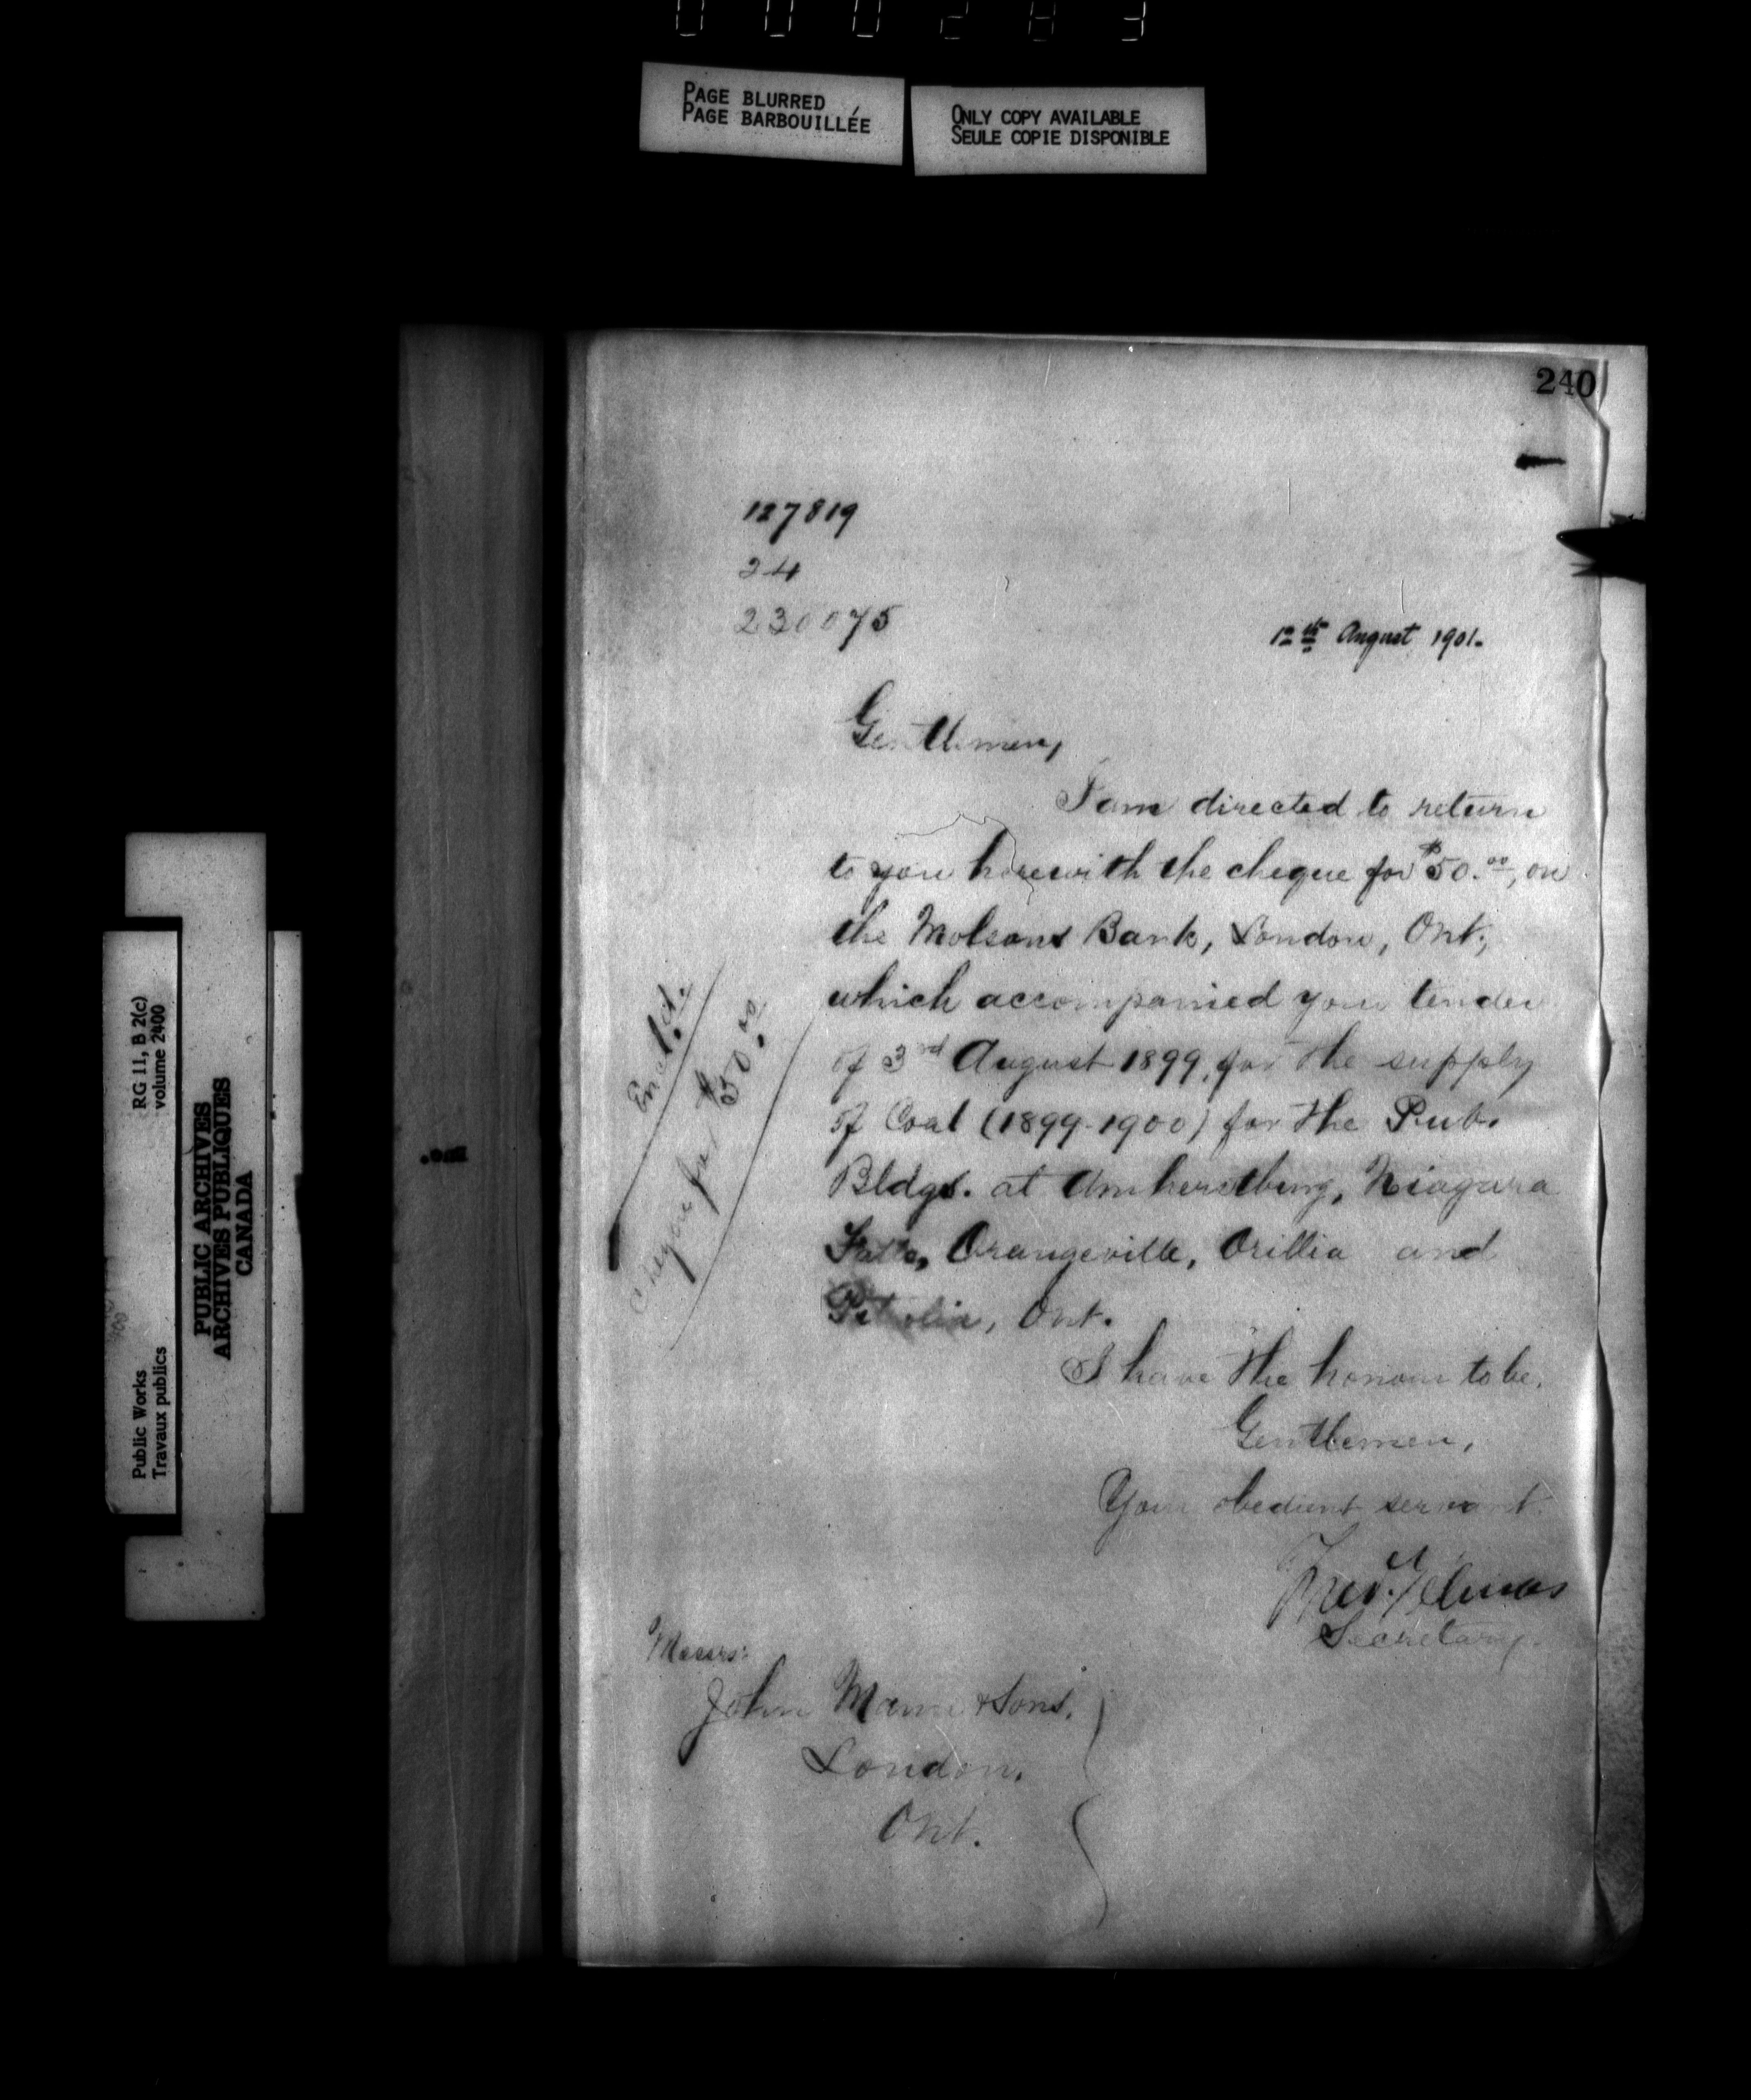 000283
PAGE BLURRED
PAGE BARBOUILLÉE
ONLY COPY AVAILABLE
SEULE COPIE DISPONIBLE
240
127819
24
230075
12th August 1901.
Gentlemen,
I am directed to return
to you herewith the cheque for $50.00, on
the Molsons Bank, London, Ont.,
which accompanied your tender
of 3rd August 1899, for the supply
of Coal (1899-1900) for the Pub.
Bldgs. at Amherstburg, Niagara
Falls, Orangeville, Orillia and
Petrolia, Ont.
I have the honour to be,
Gentlemen,
Your obedient servant
Fred. Gélinas
Secretary.
Encl.
Cheque for $50.00
Messrs:
John Mann & Sons,
London,
Ont.
RG 11, B 2(c)
volume 2400
Public Works
Travaux publics
PUBLIC ARCHIVES
ARCHIVES PUBLIQUES
CANADA